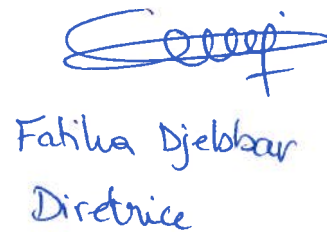 Fatiha Djebbar
Diretrice